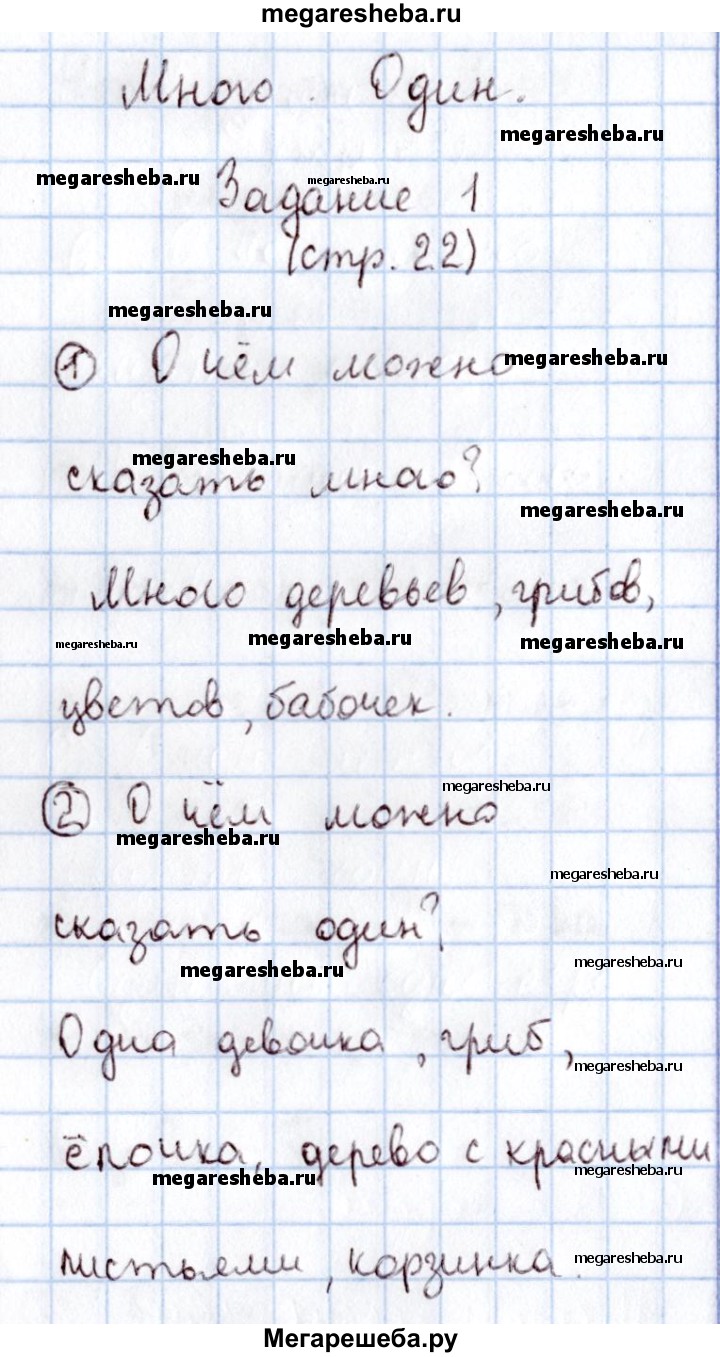 megaresheba.ru
Много. Один.
megaresheba.ru
megaresheba.ru
megaresheba.ru
Задание 1
(стр. 22)
megaresheba.ru
① О чём можно
megaresheba.ru
megaresheba.ru
сказать много?
megaresheba.ru
Много деревьев, грибов,
megaresheba.ru
megaresheba.ru
megaresheba.ru
цветов, бабочек.
megaresheba.ru
② О чём можно
megaresheba.ru
megaresheba.ru
сказать один?
megaresheba.ru
megaresheba.ru
Одна девочка, гриб,
megaresheba.ru
ёлочка, дерево с красными
megaresheba.ru
megaresheba.ru
листьями, корзинка.
megaresheba.ru
Мегарешеба.ру